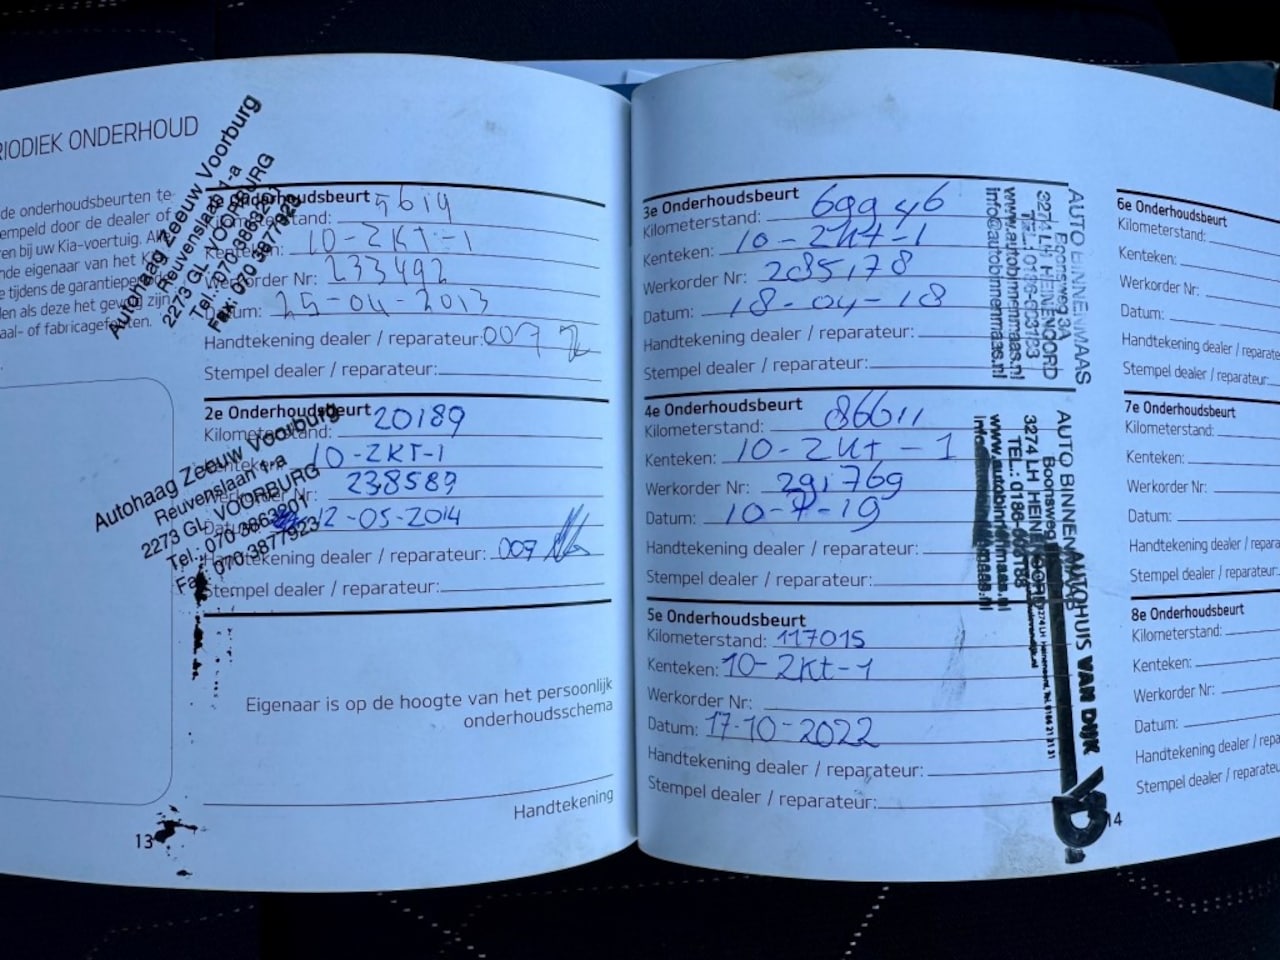 RIODIEK ONDERHOUD
de onderhoudsbeurten te-
empeld door de dealer of
en bij uw Kia-voertuig.
nde eigenaar van het
e tijdens de garantieperi
den als deze het zijn
aal- of fabricagefouten.
Autohaag Zeeuw Voorburg
Reuvenslaan 1-a
2273 GL VOORBURG
Tel.: 070 3863201
Fax: 070 3877923
Onderhoudsbeurt
5619
Kenteken: 10-ZKT-1
Werkorder Nr: 233492
Datum: 25-04-2013
Handtekening dealer / reparateur: 007
Stempel dealer / reparateur:
2e Onderhoudsbeurt
Kilometerstand: 20189
Kenteken: 10-ZKT-1
Werkorder Nr: 238589
Datum: 12-05-2014
Handtekening dealer / reparateur: 007
Stempel dealer / reparateur:
Autohaag Zeeuw Voorburg
Reuvenslaan 1-a
2273 GL VOORBURG
Tel.: 070 3863201
Fax: 070 3877923
Eigenaar is op de hoogte van het persoonlijk
onderhoudsschema
Handtekening
13
3e Onderhoudsbeurt
Kilometerstand: 69946
Kenteken: 10-2KT-1
Werkorder Nr: 285178
Datum: 18-04-18
Handtekening dealer / reparateur:
Stempel dealer / reparateur:
AUTO BINNENMAAS
Boonsweg 3A
3274 LH HEINENOORD
www.autobinnenmaas.nl
info@autobinnenmaas.nl
4e Onderhoudsbeurt
Kilometerstand: 86611
Kenteken: 10-2KT-1
Werkorder Nr: 291769
Datum: 10-7-19
Handtekening dealer / reparateur:
Stempel dealer / reparateur:
AUTO BINNENMAAS
Boonsweg
3274 LH HEINENOORD
TEL.: 0186-
www.autobinnenmaas.nl
5e Onderhoudsbeurt
Kilometerstand: 117015
Kenteken: 10-2Kt-1
Werkorder Nr:
Datum: 17-10-2022
Handtekening dealer / reparateur:
Stempel dealer / reparateur:
AUTOHUIS VAN DIJK
VD
14
6e Onderhoudsbeurt
Kilometerstand:
Kenteken:
Werkorder Nr:
Datum:
Handtekening dealer / reparate
Stempel dealer / reparateur:
7e Onderhoudsbeurt
Kilometerstand:
Kenteken:
Werkorder Nr:
Datum:
Handtekening dealer / repara
Stempel dealer / reparateur:
8e Onderhoudsbeurt
Kilometerstand:
Kenteken:
Werkorder Nr:
Datum:
Handtekening dealer / repa
Stempel dealer / reparateu